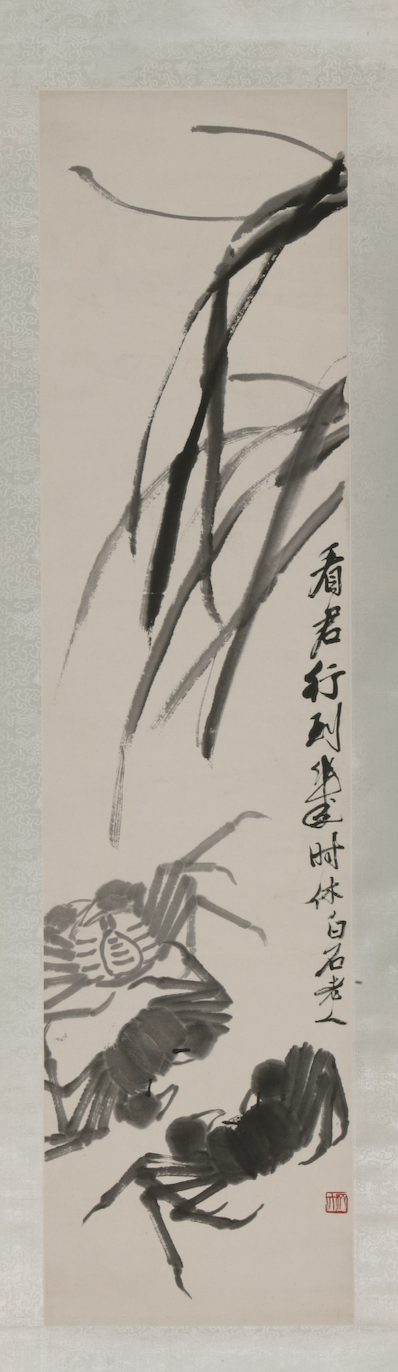 看君行到幾时休白石老人